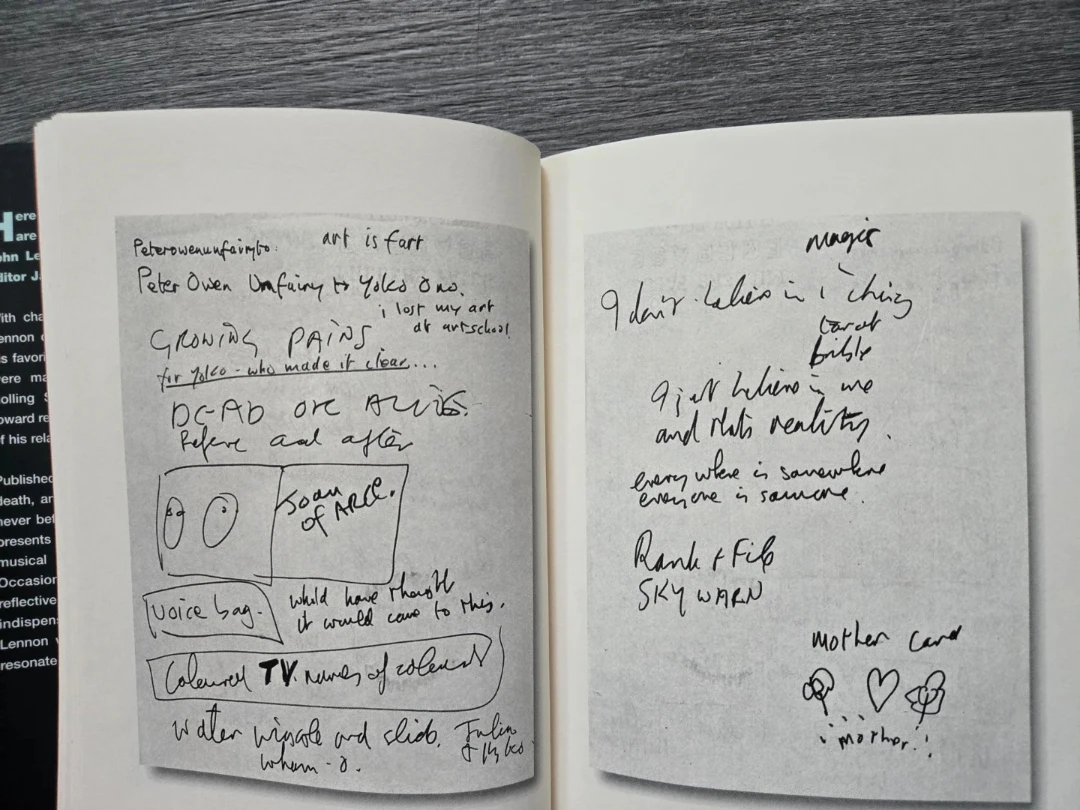 Here
are
John Le
ditor J.
ith cha
ennon
s favori
ere ma
olling S
oward re
f his rela
Published
death, an
never bef
presents
musical
Occasion
reflective
indispens
Lennon
resonate
Peterowenunfairyto. art is fart
Peter Owen Unfairy to Yolko Ono.
i lost my art
at artschool
GROWING PAINS.
for Yolko - who made it clear...
DEAD OR ALIVE.
Before and after
Joan
of ARC.
voice bag.
would have thought
it would come to this.
Coloured TV. names of
Water wiggle and slide.
wham-o.
magic
I don't believe in i ching
tarot
bible
I just believe in me
and that's reality.
everywhere is somewhere
everyone is someone.
Rank + File
SKYWARN
mother card
mother!